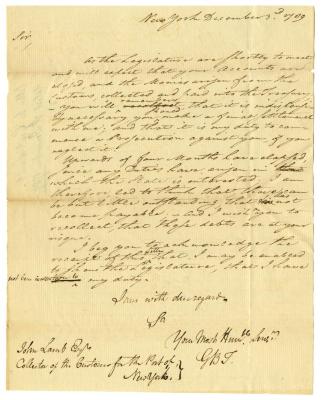 New York December 3.d 1789
Sir,
As the Legislature are shortly to meet
and will expect that your accounts are
closed, and the Monies arisen from the
Customs collected and paid into the Treasury,
you will that it is indispen
necessary you make a final settlement
with me; and that it is my duty to com
mence a Prosecution against you if you
neglect it.
Upwards of four Months have elapsed,
since any Duties have arisen in
which the State is interested. I am
therefore led to think that there can
be but little outstanding that has not
become payable, and I wish you to
recollect, that these debts are at your
risque.
I beg you to acknowledge the
receipt of this that I may be enabled
to the Legislature, that I have
not been my duty.
I am with due regard
Sir
Your Most Humble Serv.t
GBT.
John Lamb Esq.r
Collector of the Customs for the Port of
New York.